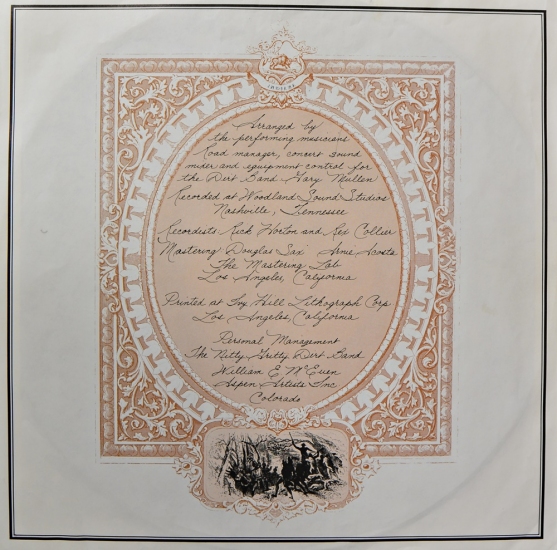 Arranged by
the performing musicians
Road manager, concert sound
mixer and equipment control for
the Dirt Band Gary Mullen
Recorded at Woodland Sound Studios
Nashville, Tennessee
Recordists Rick Horton and Rex Collier
Mastering Douglas Sax Arnie Acosta
The Mastering Lab
Los Angeles, California
Printed at Ivy Hill Lithograph Corp.
Los Angeles, California
Personal Management
The Nitty Gritty Dirt Band
William E. McEuen
Aspen Artists Inc
Colorado